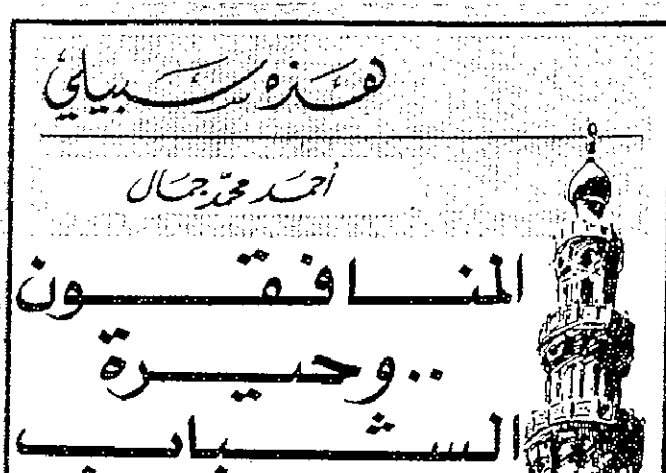 هذه سبيلي
أحمد محمد جمال
المنافقون
..وحيرة
الشباب